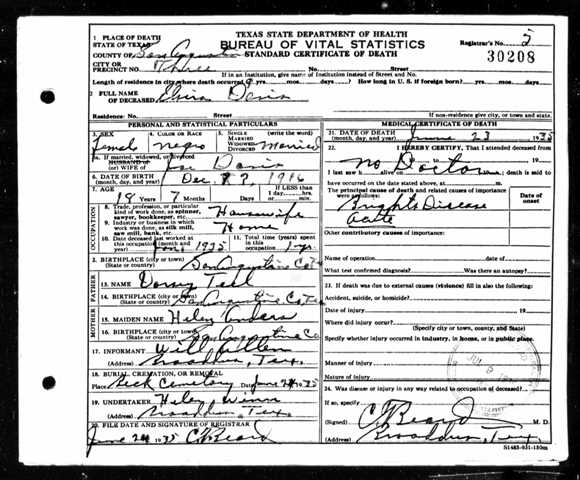 TEXAS STATE DEPARTMENT OF HEALTH
BUREAU OF VITAL STATISTICS
STANDARD CERTIFICATE OF DEATH
Registrar's No. 5
30208
1 PLACE OF DEATH
STATE OF TEXAS
COUNTY OF San Augustine
CITY OR
PRECINCT NO. Three Street
If in an institution, give name of institution instead of Street and No.
Length of residence in city where death occurred yrs. mos. days? How long in U. S. if foreign born? yrs. mos. days
2 FULL NAME
OF DECEASED Davis
Residence: No. Street
If non-residence give city, or town and state.
PERSONAL AND STATISTICAL PARTICULARS
3. SEX
Female
4. COLOR OR RACE
negro
5. SINGLE
MARRIED
WIDOWED
DIVORCED
(write the word)
Married
5a. If married, widowed, or divorced
HUSBAND of
(or) WIFE of Joe Davis
6. DATE OF BIRTH
(month, day, and year) Dec. 1916
7. AGE
18 Years 7 Months Days
If LESS than
1 day, hrs.
or min.
OCCUPATION
8. Trade, profession, or particular
kind of work done, as spinner,
sawyer, bookkeeper, etc. Housewife
9. Industry or business in which
work was done, as silk mill,
saw mill, bank, etc. Home
10. Date deceased last worked at
this occupation (month and
year) 1935
11. Total time (years)
spent in this
occupation 1 yr.
12. BIRTHPLACE (city or town)
(State or country) San Augustine Co Tex
FATHER
13. NAME Teel
14. BIRTHPLACE (city or town)
(State or country) San Augustine Co Tex
MOTHER
15. MAIDEN NAME
16. BIRTHPLACE (city or town)
(State or country) San Augustine Co
17. INFORMANT
(Address) Broaddus, Tex.
18. BURIAL, CREMATION, OR REMOVAL
Place Cemetery Date June 24 1935
19. UNDERTAKER
(Address) Broaddus, Tex.
20. FILE DATE AND SIGNATURE OF REGISTRAR
June 24 1935 C. Beard
MEDICAL CERTIFICATE OF DEATH
21. DATE OF DEATH
(month, day, and year) June 23 1935
22. I HEREBY CERTIFY, That I attended deceased
from 19 , to 19
I last saw h alive on 19 , death is said to
No Doctor
have occurred on the date stated above, at m.
The principal cause of death and related causes of importance
were as follows:
Date of
onset
Brights Disease
acute
Other contributory causes of importance:
Name of operation Date of
What test confirmed diagnosis? Was there an autopsy?
23. If death was due to external causes (violence) fill in also the following:
Accident, suicide, or homicide?
Date of injury 19
Where did injury occur?
(Specify city or town, county, and State)
Specify whether injury occurred in industry, in home, or in public place.
Manner of injury
Nature of injury
24. Was disease or injury in any way related to occupation of deceased?
If so, specify
(Signed) C. Beard M. D.
(Address) Broaddus, Tex.
S1463-931-150m